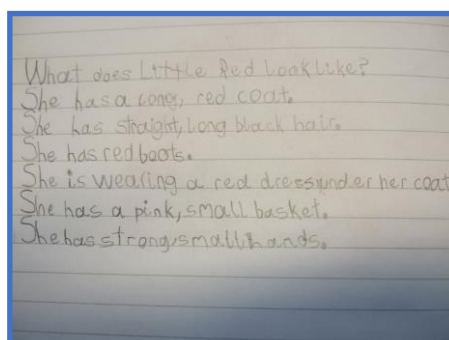 What does Little Red Look Like?
She has a long, red coat.
She has straight, long black hair.
She has red boots.
She is wearing a red dress under her coat
She has a pink, small basket.
She has strong, small hands.